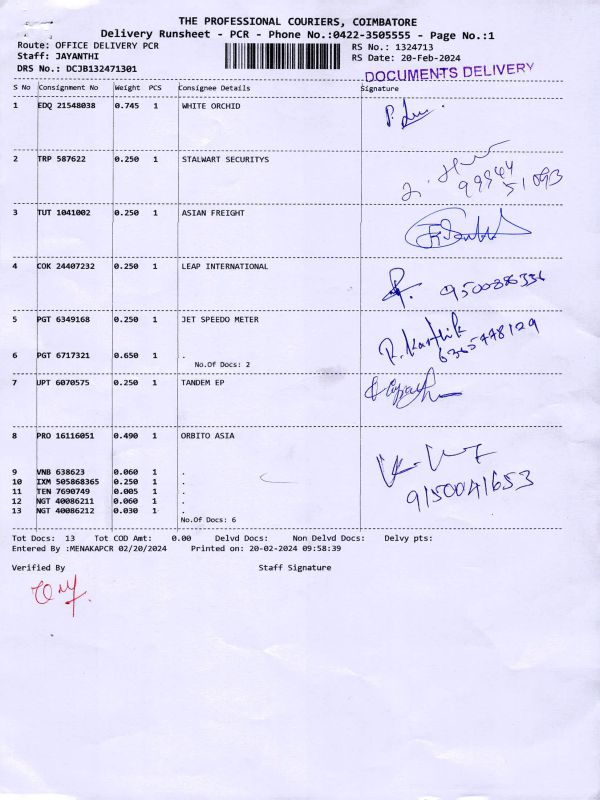 THE PROFESSIONAL COURIERS, COIMBATORE
Delivery Runsheet - PCR - Phone No.:0422-3505555 - Page No.:1
Route: OFFICE DELIVERY PCR RS No.: 1324713
Staff: JAYANTHI RS Date: 20-Feb-2024
DRS No.: DCJB132471301
DOCUMENTS DELIVERY
S No Consignment No Weight PCS Consignee Details Signature
1 EDQ 21548038 0.745 1 WHITE ORCHID
2 TRP 587622 0.250 1 STALWART SECURITYS
3 TUT 1041002 0.250 1 ASIAN FREIGHT
4 COK 24407232 0.250 1 LEAP INTERNATIONAL
5 PGT 6349168 0.250 1 JET SPEEDO METER
R. Karthik
6 PGT 6717321 0.650 1 .
6365448129
No.Of Docs: 2
7 UPT 6070575 0.250 1 TANDEM EP
8 PRO 16116051 0.490 1 ORBITO ASIA
9 VNB 638623 0.060 1 .
10 IXM 505868365 0.250 1 .
11 TEN 7690749 0.005 1 .
9150041653
12 NGT 40086211 0.060 1 .
13 NGT 40086212 0.030 1 .
No.Of Docs: 6
Tot Docs: 13 Tot COD Amt: 0.00 Delvd Docs: Non Delvd Docs: Delvy pts:
Entered By :MENAKAPCR 02/20/2024 Printed on: 20-02-2024 09:58:39
Verified By Staff Signature